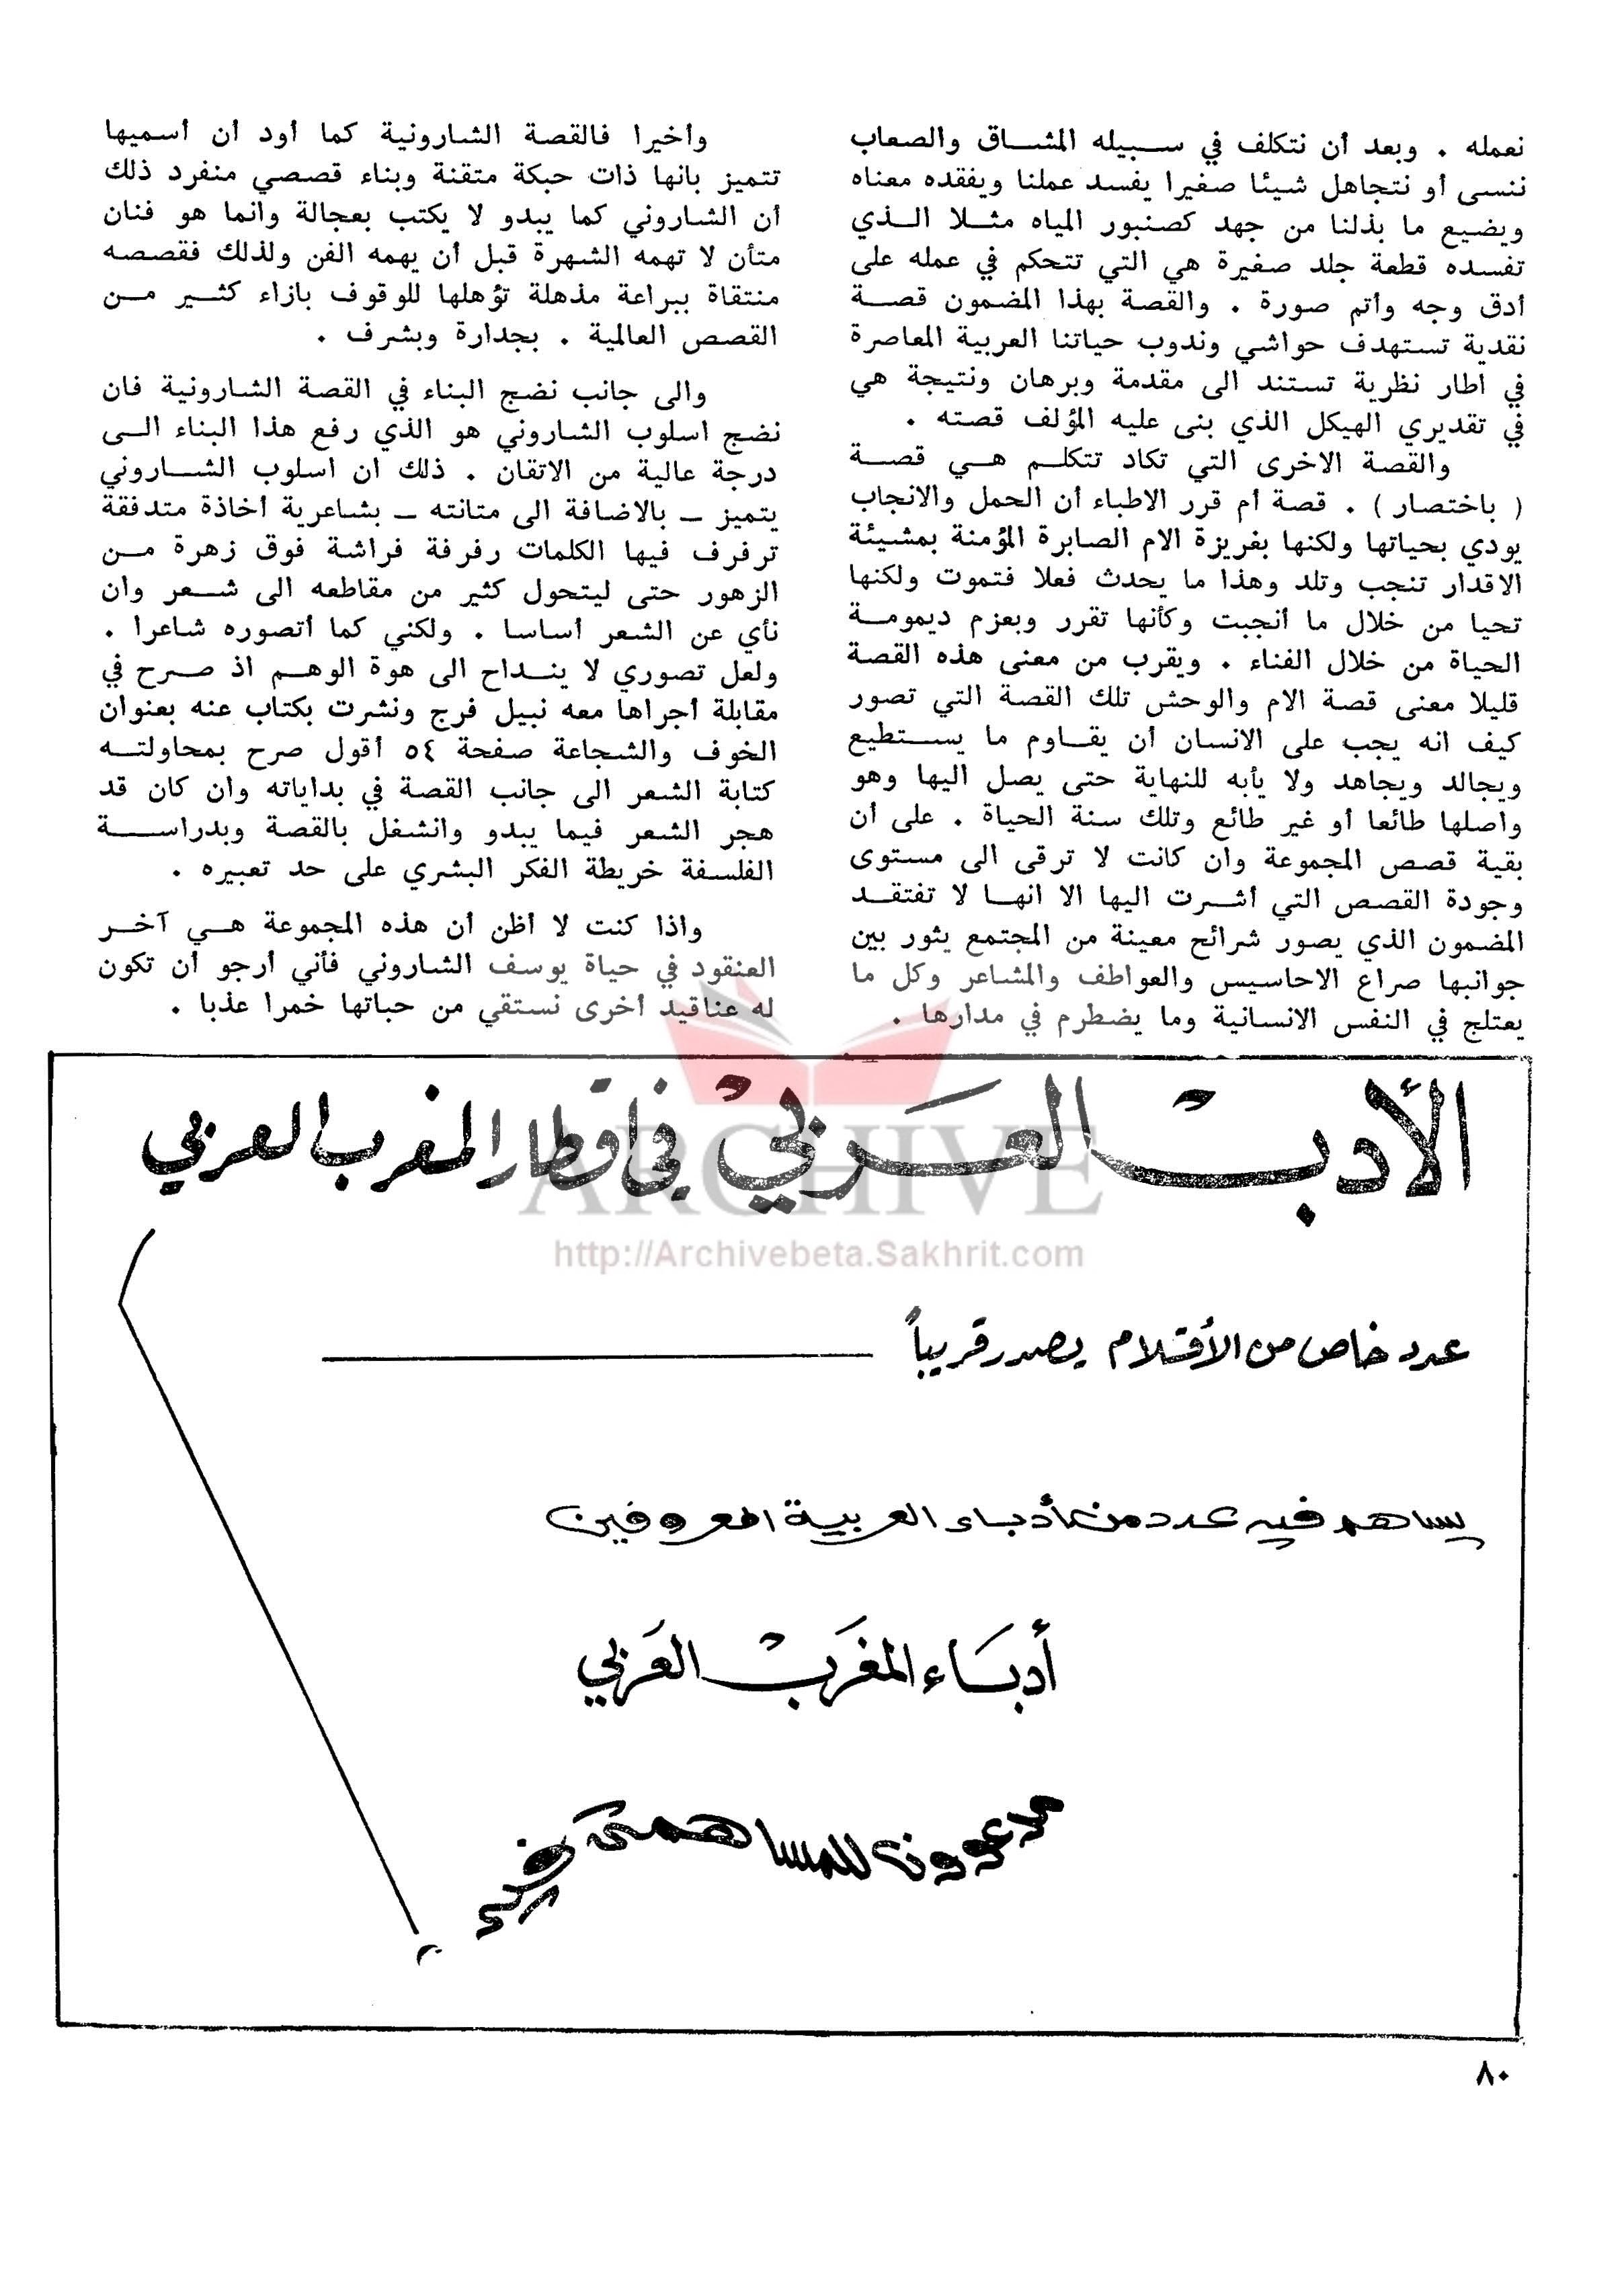 نعمله . وبعد أن نتكلف في سبيله المشاق والصعاب
ننسى أو نتجاهل شيئا صغيرا يفسد عملنا ويفقده معناه
ويضيع ما بذلنا من جهد كصنبور المياه مثلا الذي
تفسده قطعة جلد صغيرة هي التي تتحكم في عمله على
أدق وجه وأتم صورة . والقصة بهذا المضمون قصة
نقدية تستهدف حواشي وندوب حياتنا العربية المعاصرة
في اطار نظرية تستند الى مقدمة وبرهان ونتيجة هي
في تقديري الهيكل الذي بنى عليه المؤلف قصته .
والقصة الاخرى التي تكاد تتكلم هي قصة
( باختصار ) . قصة أم قرر الاطباء أن الحمل والانجاب
يودي بحياتها ولكنها بغريزة الام الصابرة المؤمنة بمشيئة
الاقدار تنجب وتلد وهذا ما يحدث فعلا فتموت ولكنها
تحيا من خلال ما أنجبت وكأنها تقرر وبعزم ديمومة
الحياة من خلال الفناء . ويقرب من معنى هذه القصة
قليلا معنى قصة الام والوحش تلك القصة التي تصور
كيف انه يجب على الانسان أن يقاوم ما يستطيع
ويجالد ويجاهد ولا يأبه للنهاية حتى يصل اليها وهو
واصلها طائعا أو غير طائع وتلك سنة الحياة . على أن
بقية قصص المجموعة وان كانت لا ترقى الى مستوى
وجودة القصص التي أشرت اليها الا انها لا تفتقد
المضمون الذي يصور شرائح معينة من المجتمع يثور بين
جوانبها صراع الاحاسيس والعواطف والمشاعر وكل ما
يعتلج في النفس الانسانية وما يضطرم في مدارها .
وأخيرا فالقصة الشارونية كما أود أن أسميها
تتميز بانها ذات حبكة متقنة وبناء قصصي منفرد ذلك
أن الشاروني كما يبدو لا يكتب بعجالة وانما هو فنان
متأن لا تهمه الشهرة قبل أن يهمه الفن ولذلك فقصصه
منتقاة ببراعة مذهلة تؤهلها للوقوف بازاء كثير من
القصص العالمية . بجدارة وبشرف .
والى جانب نضج البناء في القصة الشارونية فان
نضج اسلوب الشاروني هو الذي رفع هذا البناء الى
درجة عالية من الاتقان . ذلك ان اسلوب الشاروني
يتميز – بالاضافة الى متانته – بشاعرية أخاذة متدفقة
ترفرف فيها الكلمات رفرفة فراشة فوق زهرة من
الزهور حتى ليتحول كثير من مقاطعه الى شعر وان
نأي عن الشعر أساسا . ولكني كما أتصوره شاعرا .
ولعل تصوري لا ينداح الى هوة الوهم اذ صرح في
مقابلة أجراها معه نبيل فرج ونشرت بكتاب عنه بعنوان
الخوف والشجاعة صفحة ٥٤ أقول صرح بمحاولته
كتابة الشعر الى جانب القصة في بداياته وان كان قد
هجر الشعر فيما يبدو وانشغل بالقصة وبدراسة
الفلسفة خريطة الفكر البشري على حد تعبيره .
واذا كنت لا أظن أن هذه المجموعة هي آخر
العنقود في حياة يوسف الشاروني فأني أرجو أن تكون
له عناقيد أخرى نستقي من حباتها خمرا عذبا .
الأدب العربي في اقطار المغرب العربي
ARCHIVE
http://Archivebeta.Sakhrit.com
عدد خاص من الأقلام يصدر قريباً
يساهم فيه عدد من أدباء العربية المعروفين
أدبَاء المغرَب العَربي
مدعوون للمساهمة فيه
٨٠